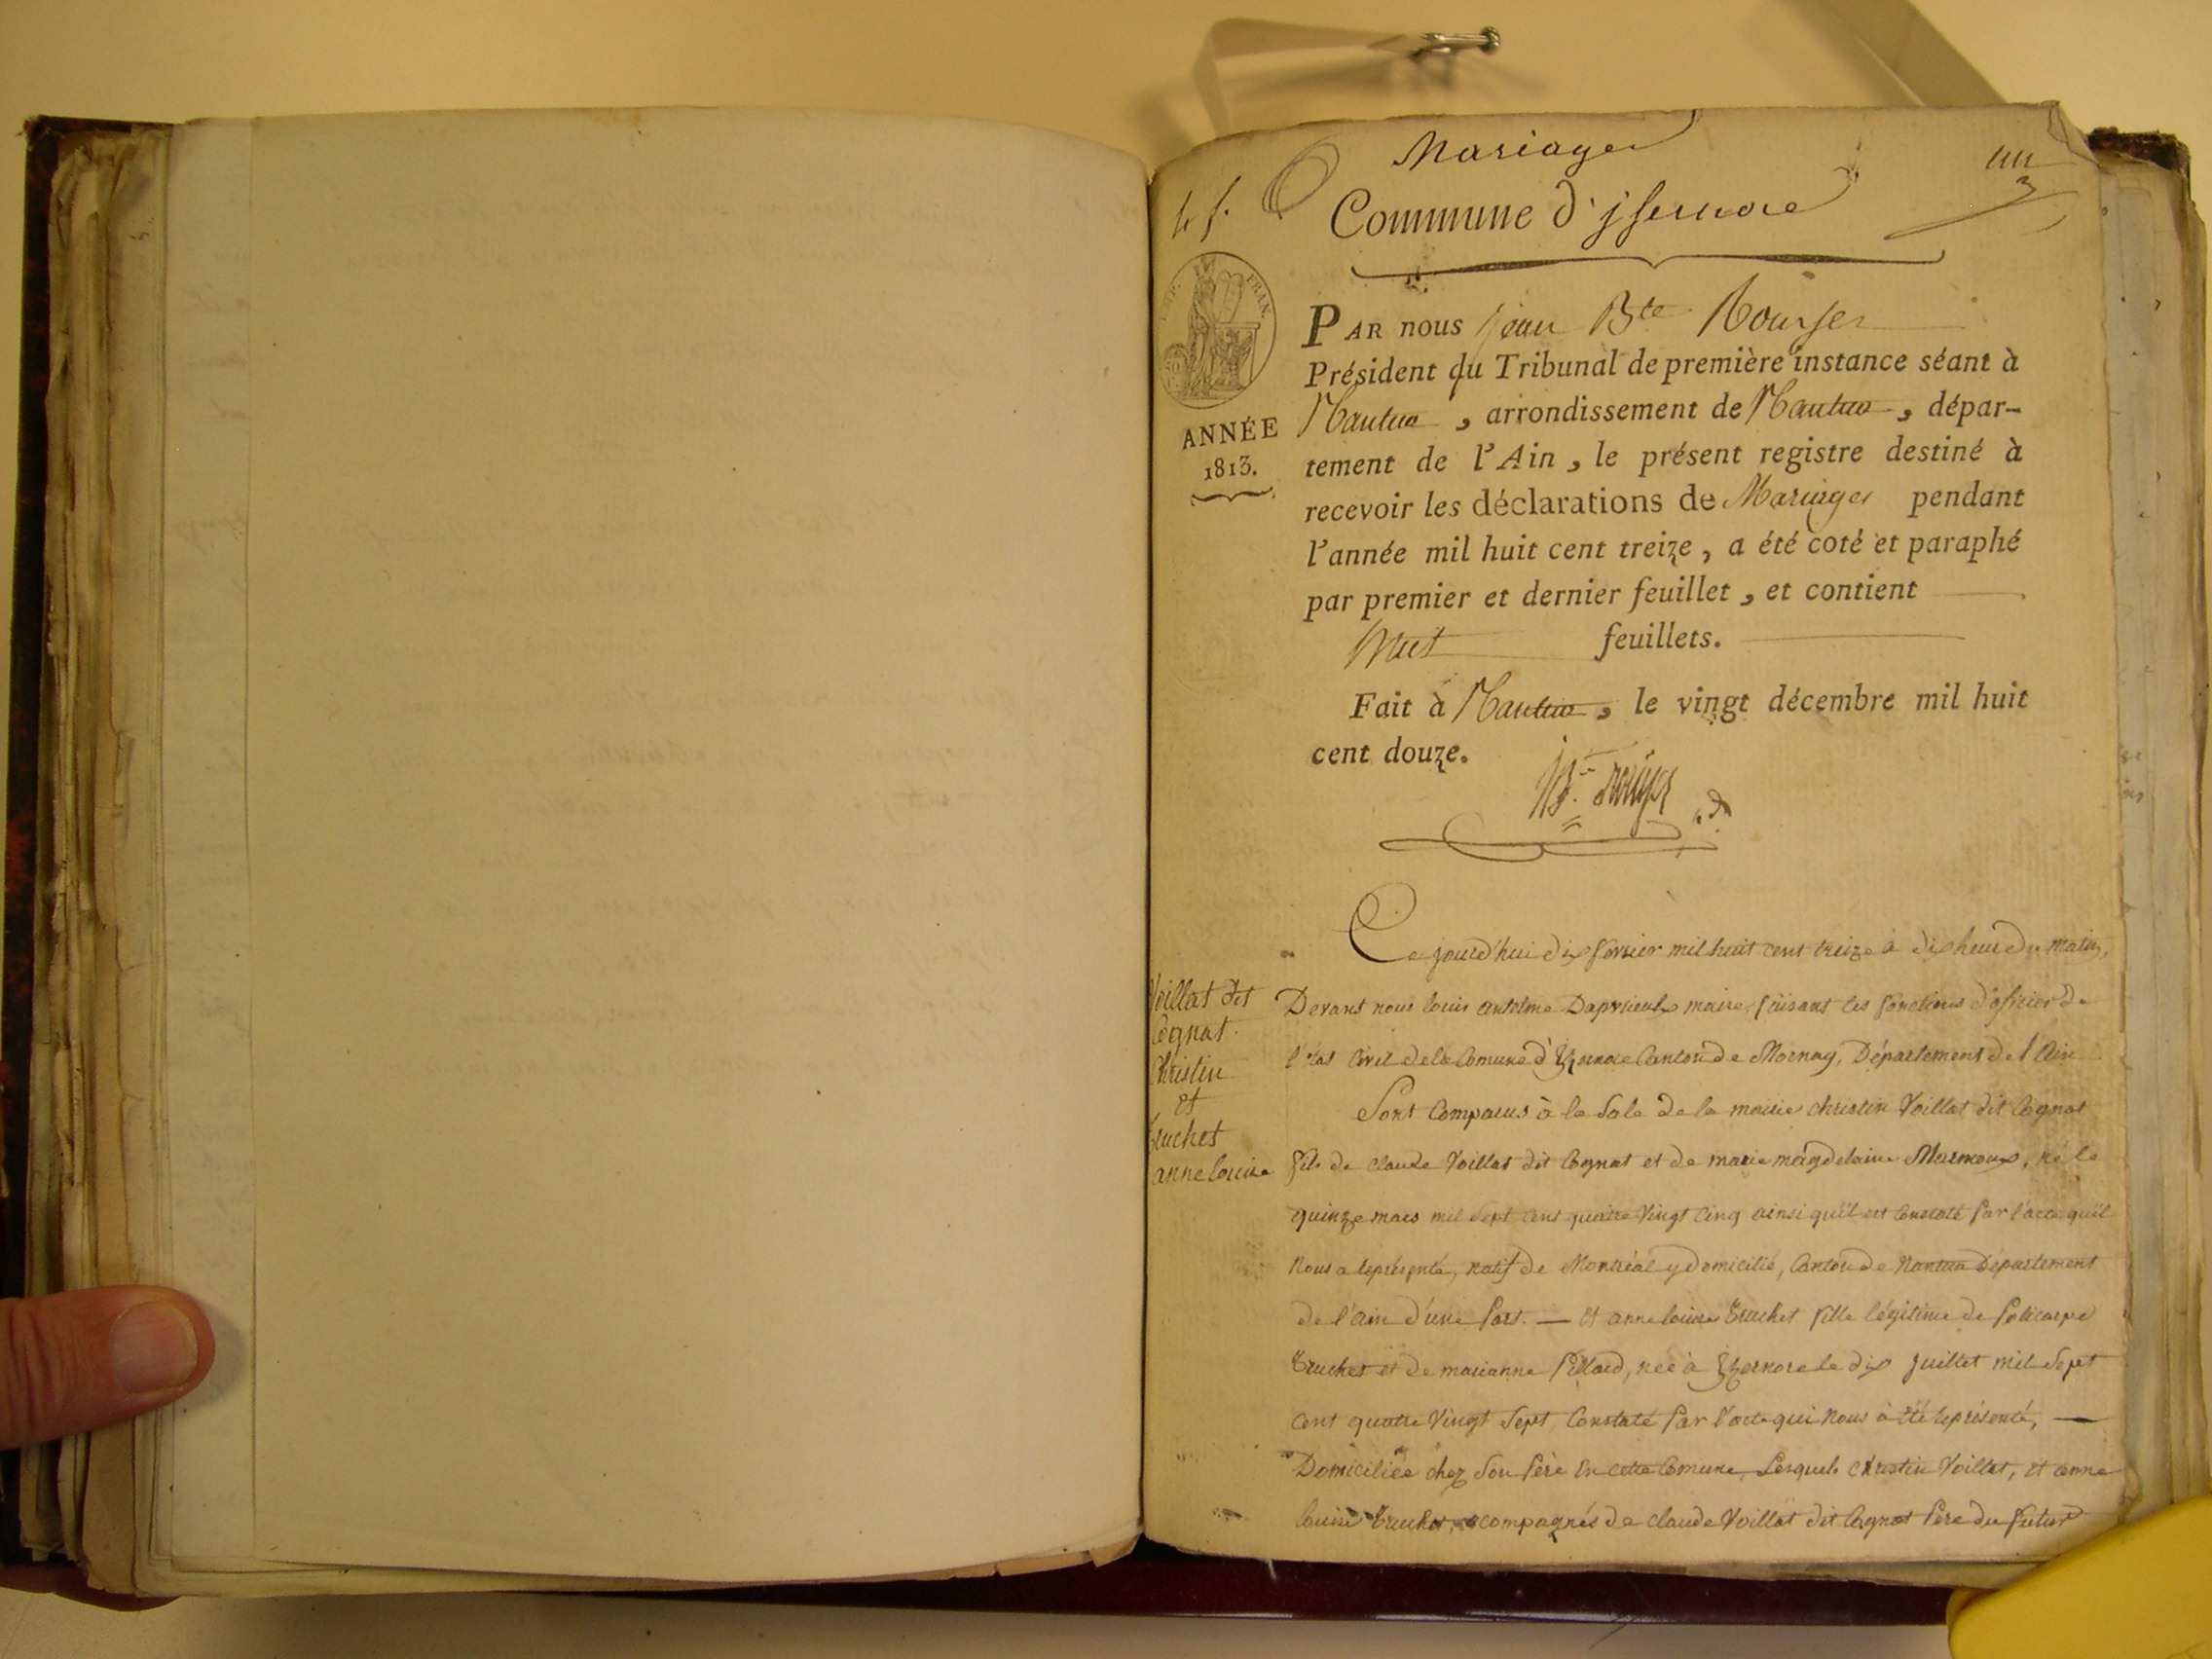 Mariages
Commune d'jsernore
IMP. FRAN.
ANNÉE
1813.
PAR nous jean Bte Rouyer
Président du Tribunal de première instance séant à
Nantua, arrondissement de Nantua, dépar-
tement de l'Ain, le présent registre destiné à
recevoir les déclarations de Mariages pendant
l'année mil huit cent treize, a été coté et paraphé
par premier et dernier feuillet, et contient
huit feuillets.
Fait à Nantua, le vingt décembre mil huit
cent douze.
Voillat dit
Cognat.
Christin
et
truchet
anne louise
Ce jourd'hui dix fevrier mil huit cent treize à dix heure du matin,
Devant nous louis antelme maire faisant les fonctions d'oficier de
l'etat Civil dela Comune d'Yzernore Canton de Mornay, Département de l'Ain
Sont Comparus à la Sale de la mairie christin Voillat dit Cognat
fils de claude Voillat dit Cognat et de marie magdelaine, né le
quinze mars mil Sept cent quatre Vingt Cinq ainsi qu'il est Constaté par l'acte qu'il
Nous a représenté, natif de Montréal y domicilié, Canton de Nantua Département
de l'ain d'une part. — Et anne louise truchet fille légitime de policarpe
truchet et de marianne Pillard, née à Yzernore le dix juillet mil Sept
cent quatre Vingt Sept, Constaté par l'acte qui Nous à été représenté, —
Domiciliée chez Son père En cette Comune, Lesquels christin Voillat, et anne
louise truchet, acompagnés de claude Voillat dit Cognat père du futur